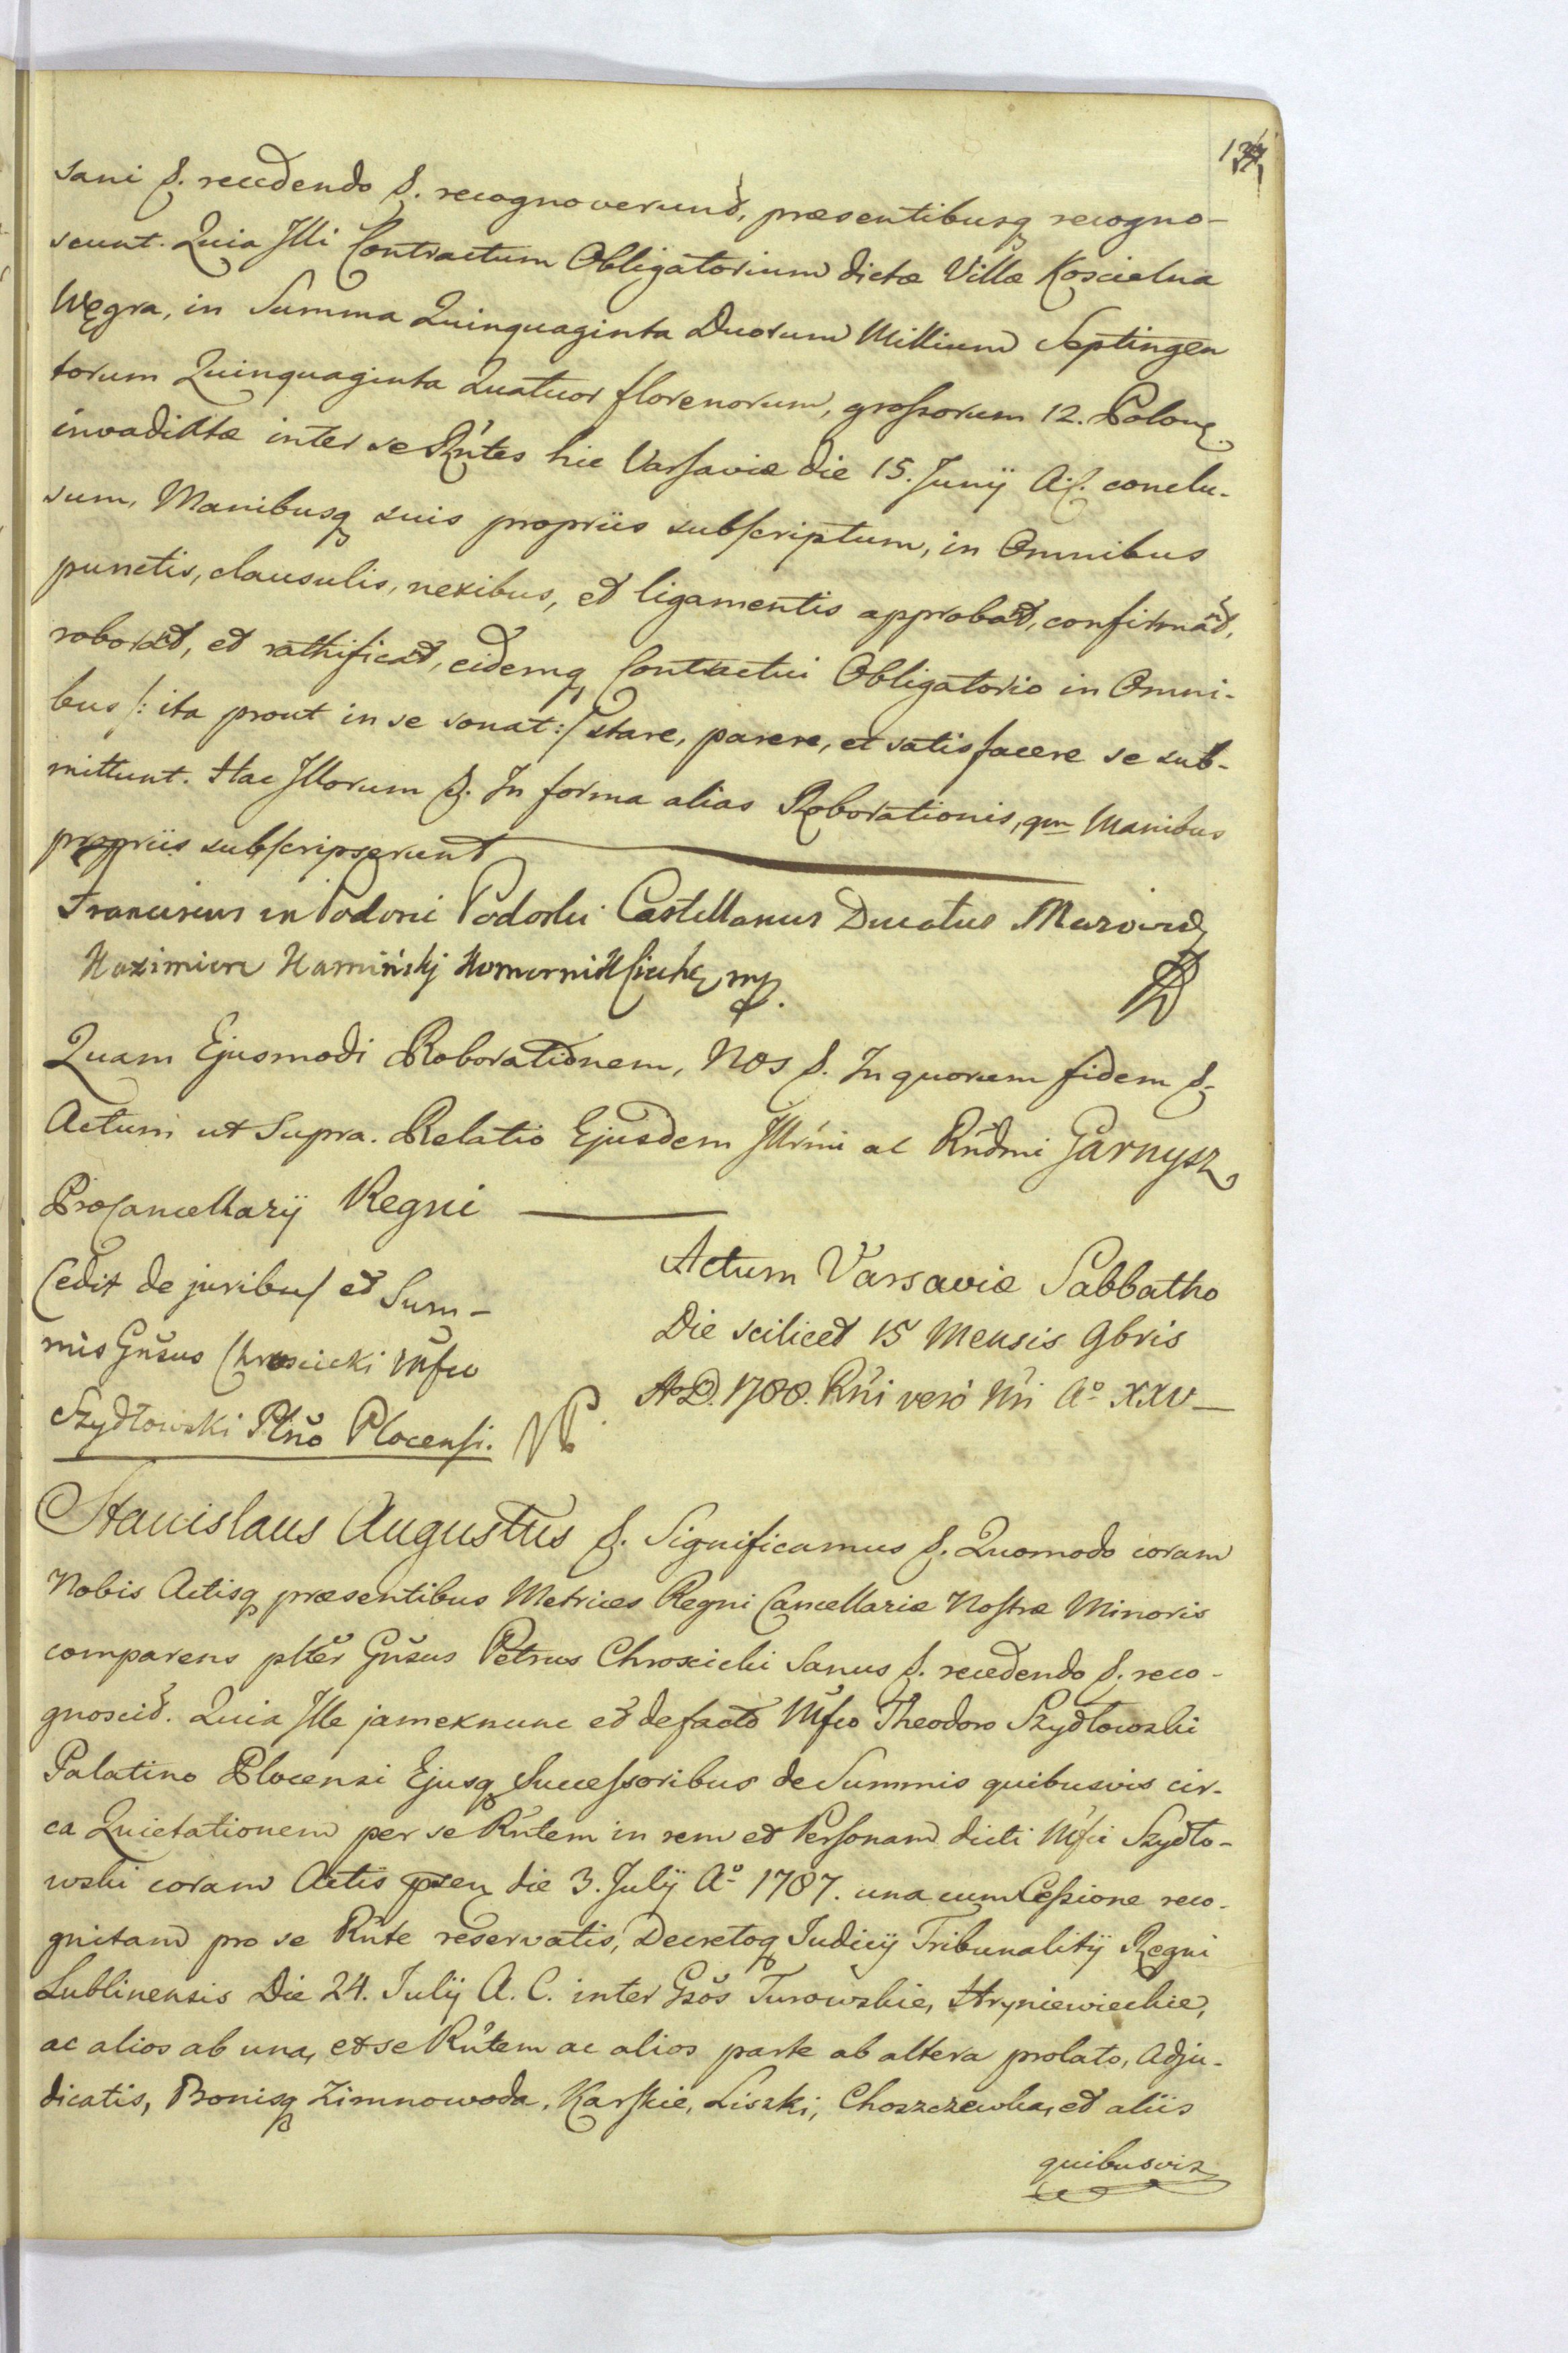 sani &. recedendo &. recognoverund, præsentibusq recogno-
scunt. Quia Illi Contractum Obligatorium dictæ Villæ Koscielna
Węgra, in Summa Quinquaginta Duorum Millium Septingen
torum Quinquaginta Quatuor florenorum, grossorum 12. Polon
invadittæ inter se Rntes hic Varsaviæ die 15. Junÿ A. C. conclu-
sum, Manibusq suis propriis subscriptum, in Omnibus
punctis, clausulis, nexibus, et ligamentis approbat, confirmat,
roborat, et rathificat, eidemq Contractui Obligatorio in Omni-
bus /: ita prout in se sonat :/ stare, parere, et satisfacere se sub-
mittunt. Hac Illorum &. In forma alias Roborationis, qm Manibus
propriis subscripserunt
Franciscus in Podorie Podoski Castellanus Ducatus Mazovię
Kazimierz Kamiński Komornik mp.
Quam Ejusmodi Roborationem, Nos &. In quorum fidem &.
Actum ut Supra. Relatio Ejusdem Illrmi ac Rndmi Garnysz
ProCancellarÿ Regni
Cedit de juribus et Sum-
mis Gnsus Chroscicki Mfco
Szydłowski Plno Plocensi.
Actum Varsaviæ Sabbatho
Die scilicet 15 Mensis 9bris
A. D. 1788. Rni vero Nri A° XXV
Stanislaus Augustus &. Significamus &. Quomodo coram
Nobis Actisq præsentibus Metrices Regni Cancellariæ Nostræ Minoris
comparens plter Gnsus Petrus Chroscicki Sanus &. recedendo &. reco-
gnoscit. Quia Ille jamexnunc et defacto Mfco Theodoro Szydłowski
Palatino Plocensi Ejusq Successoribus de Summis quibusvis cir-
ca Quietationem per se Rntem in rem et Personam dicti Mfci Szydło-
wski coram Actis præsen die 3. Julÿ A° 1787. una cum Cessione reco-
gnitam pro se Rnte reservatis, Decretoq Judicÿ Tribunalitÿ Regni
Lublinensis Die 24. Julÿ A. C. inter Gsos Turowskie, Hryniewieckie,
ac alios ab una, et se Rntem ac alios parte ab altera prolato, Adju-
dicatis, Bonisq Zimnowoda, Karskie, Liszki, Choszczewka, et aliis
quibusvis